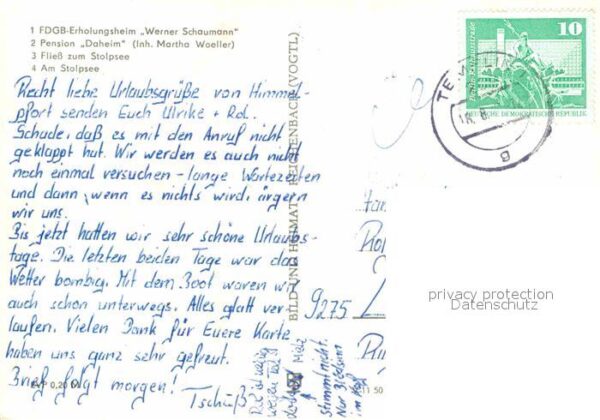 1 FDGB-Erholungsheim „Werner Schaumann"
2 Pension „Daheim" (Inh. Martha Woeller)
3 Fließ zum Stolpsee
4 Am Stolpsee
Recht liebe Urlaubsgrüße von Himmel-
pfort senden Euch Ulrike + Rol.
Schade, daß es mit den Anruf nicht
geklappt hat. Wir werden es auch nicht
noch einmal versuchen - lange Wartezeiten
und dann, wenn es nichts wird, ärgern
wir uns.
Bis jetzt hatten wir sehr schöne Urlaubs-
tage. Die letzten beiden Tage war das
Wetter bombig. Mit dem Boot waren wir
auch schon unterwegs. Alles glatt ver-
laufen. Vielen Dank für Euere Karte
haben uns ganz sehr gefreut.
Brief folgt morgen!
Tschüß
EVP 0,20 M
BILD UND HEIMAT REICHENBACH (VOGTL)
Stimmt nicht.
Nur
im Kopf
10
DEUTSCHE DEMOKRATISCHE REPUBLIK
9275
privacy protection
Datenschutz